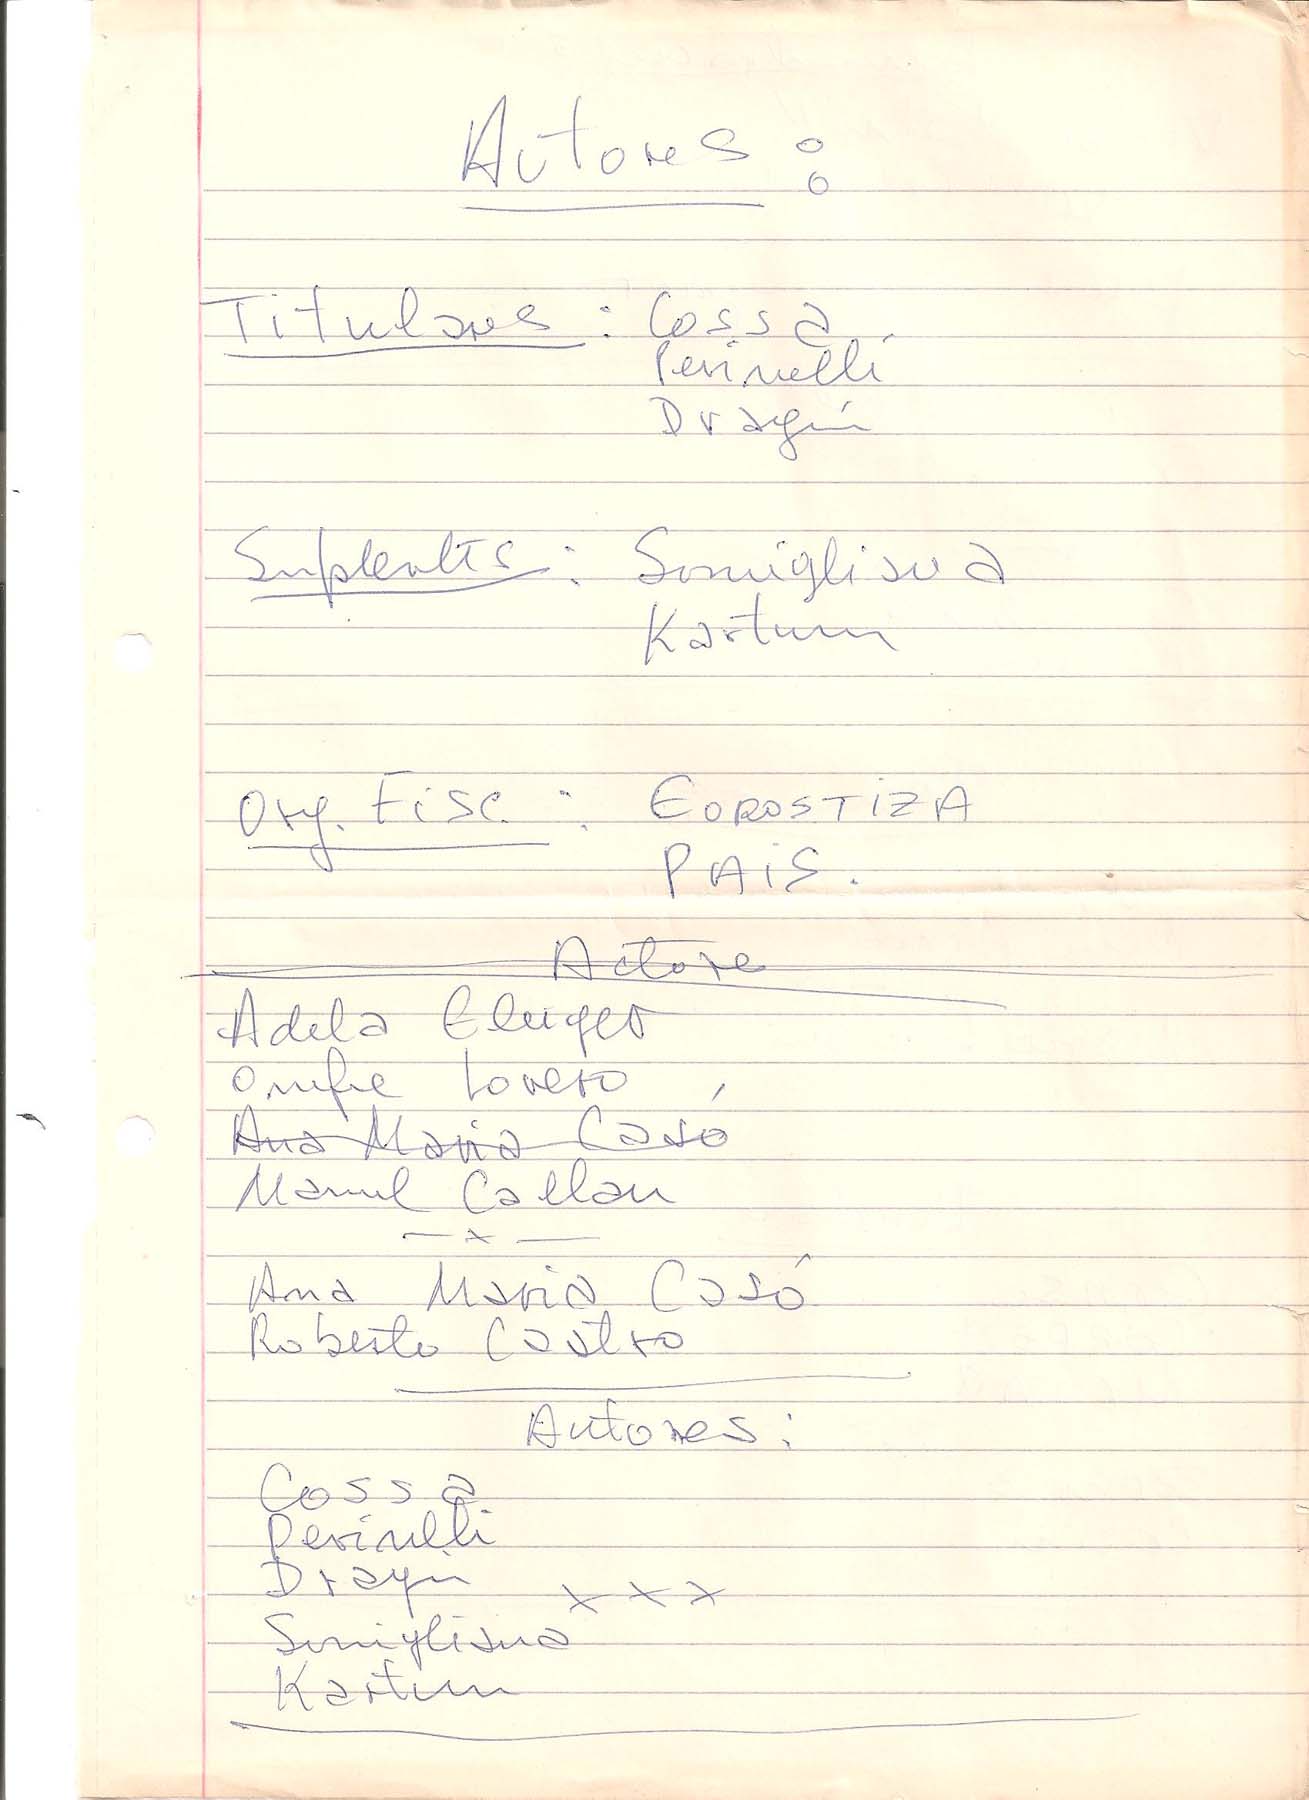 Autores:
Titulares: Cossa
Perinelli
Dragún
Suplentes: Somigliana
Kartun
Org. Fisc.: GOROSTIZA
PAIS.
Actores
Adela Gleiger
Onofre Lovero
Ana Maria Casó
Manuel Callau
—x—
Ana Maria Casó
Roberto Castro
Autores:
Cossa
Perinelli
Dragún
x x x
Somigliana
Kartun